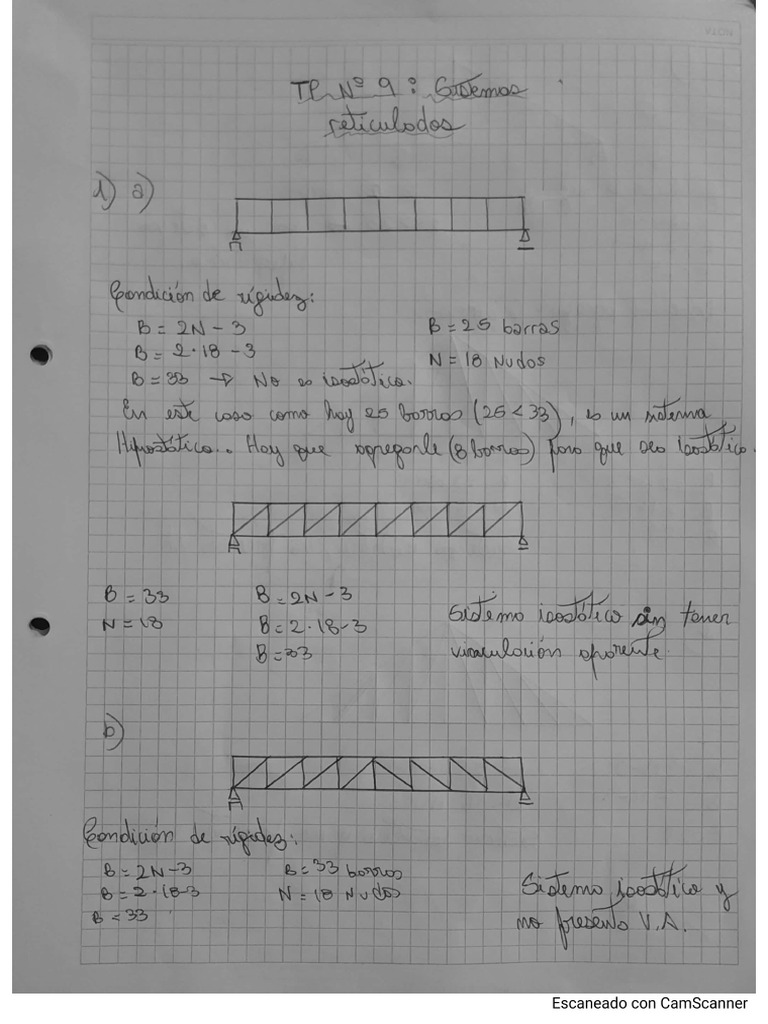 TP Nº 9: Sistemas
reticulados
1) a)
Condición de rigidez:
B = 2N - 3
B = 2·18 - 3
B = 33 → No es isostático.
B = 25 barras
N = 18 Nudos
En este caso como hay 25 barras (25 < 33), es un sistema
Hipostático.. Hay que agregarle (8 barras) para que sea isostático.
B = 33
N = 18
B = 2N - 3
B = 2·18-3
B = 33
Sistema isostático sin tener
vinculación aparente.
b)
Condición de rigidez:
B = 2N-3
B = 2·18-3
B = 33
B = 33 barras
N = 18 Nudos
Sistema isostático y
no presenta V.A.
Escaneado con CamScanner